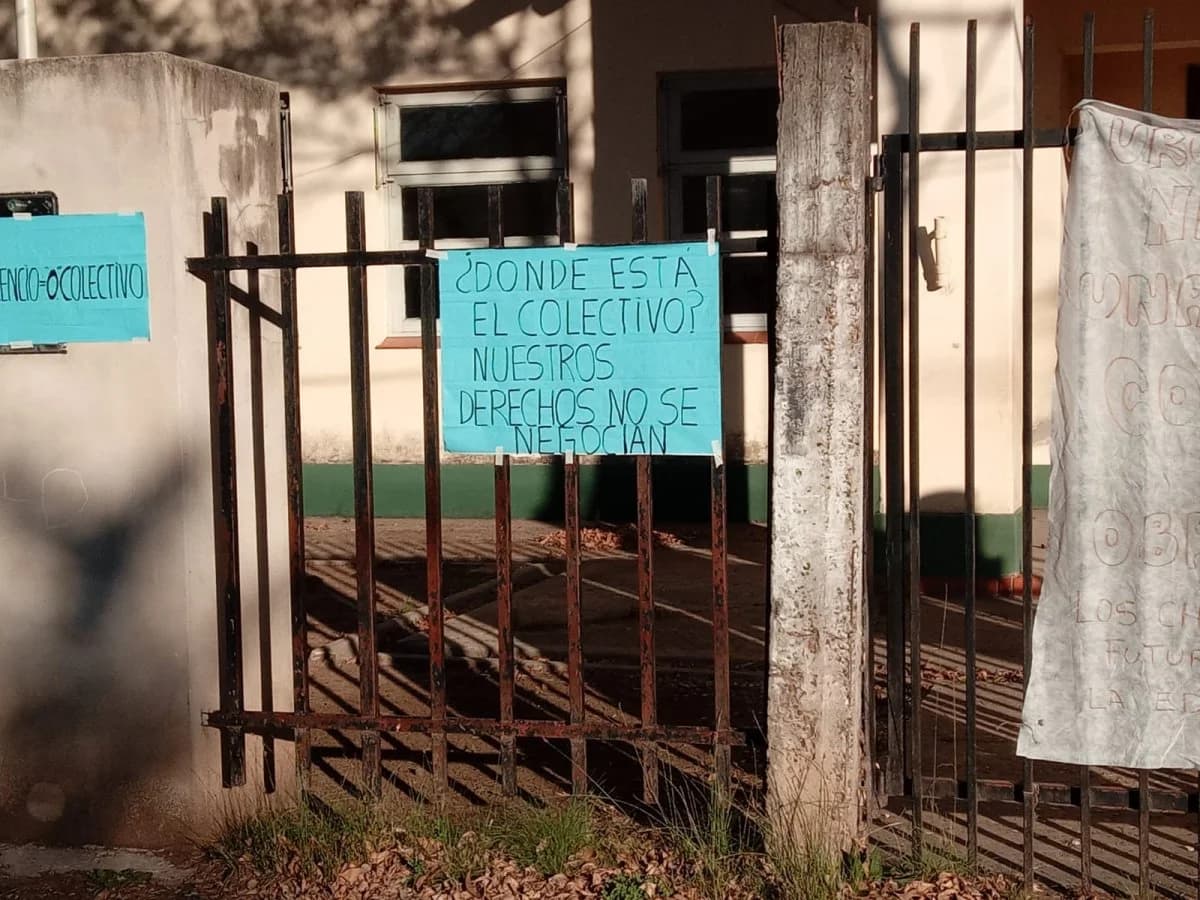 ENCIO=0 COLECTIVO
¿DONDE ESTÁ
EL COLECTIVO?
NUESTROS
DERECHOS NO SE
NEGOCIAN
UR
N
UNA
CO
OBR
LOS CH
FUTUR
LA E